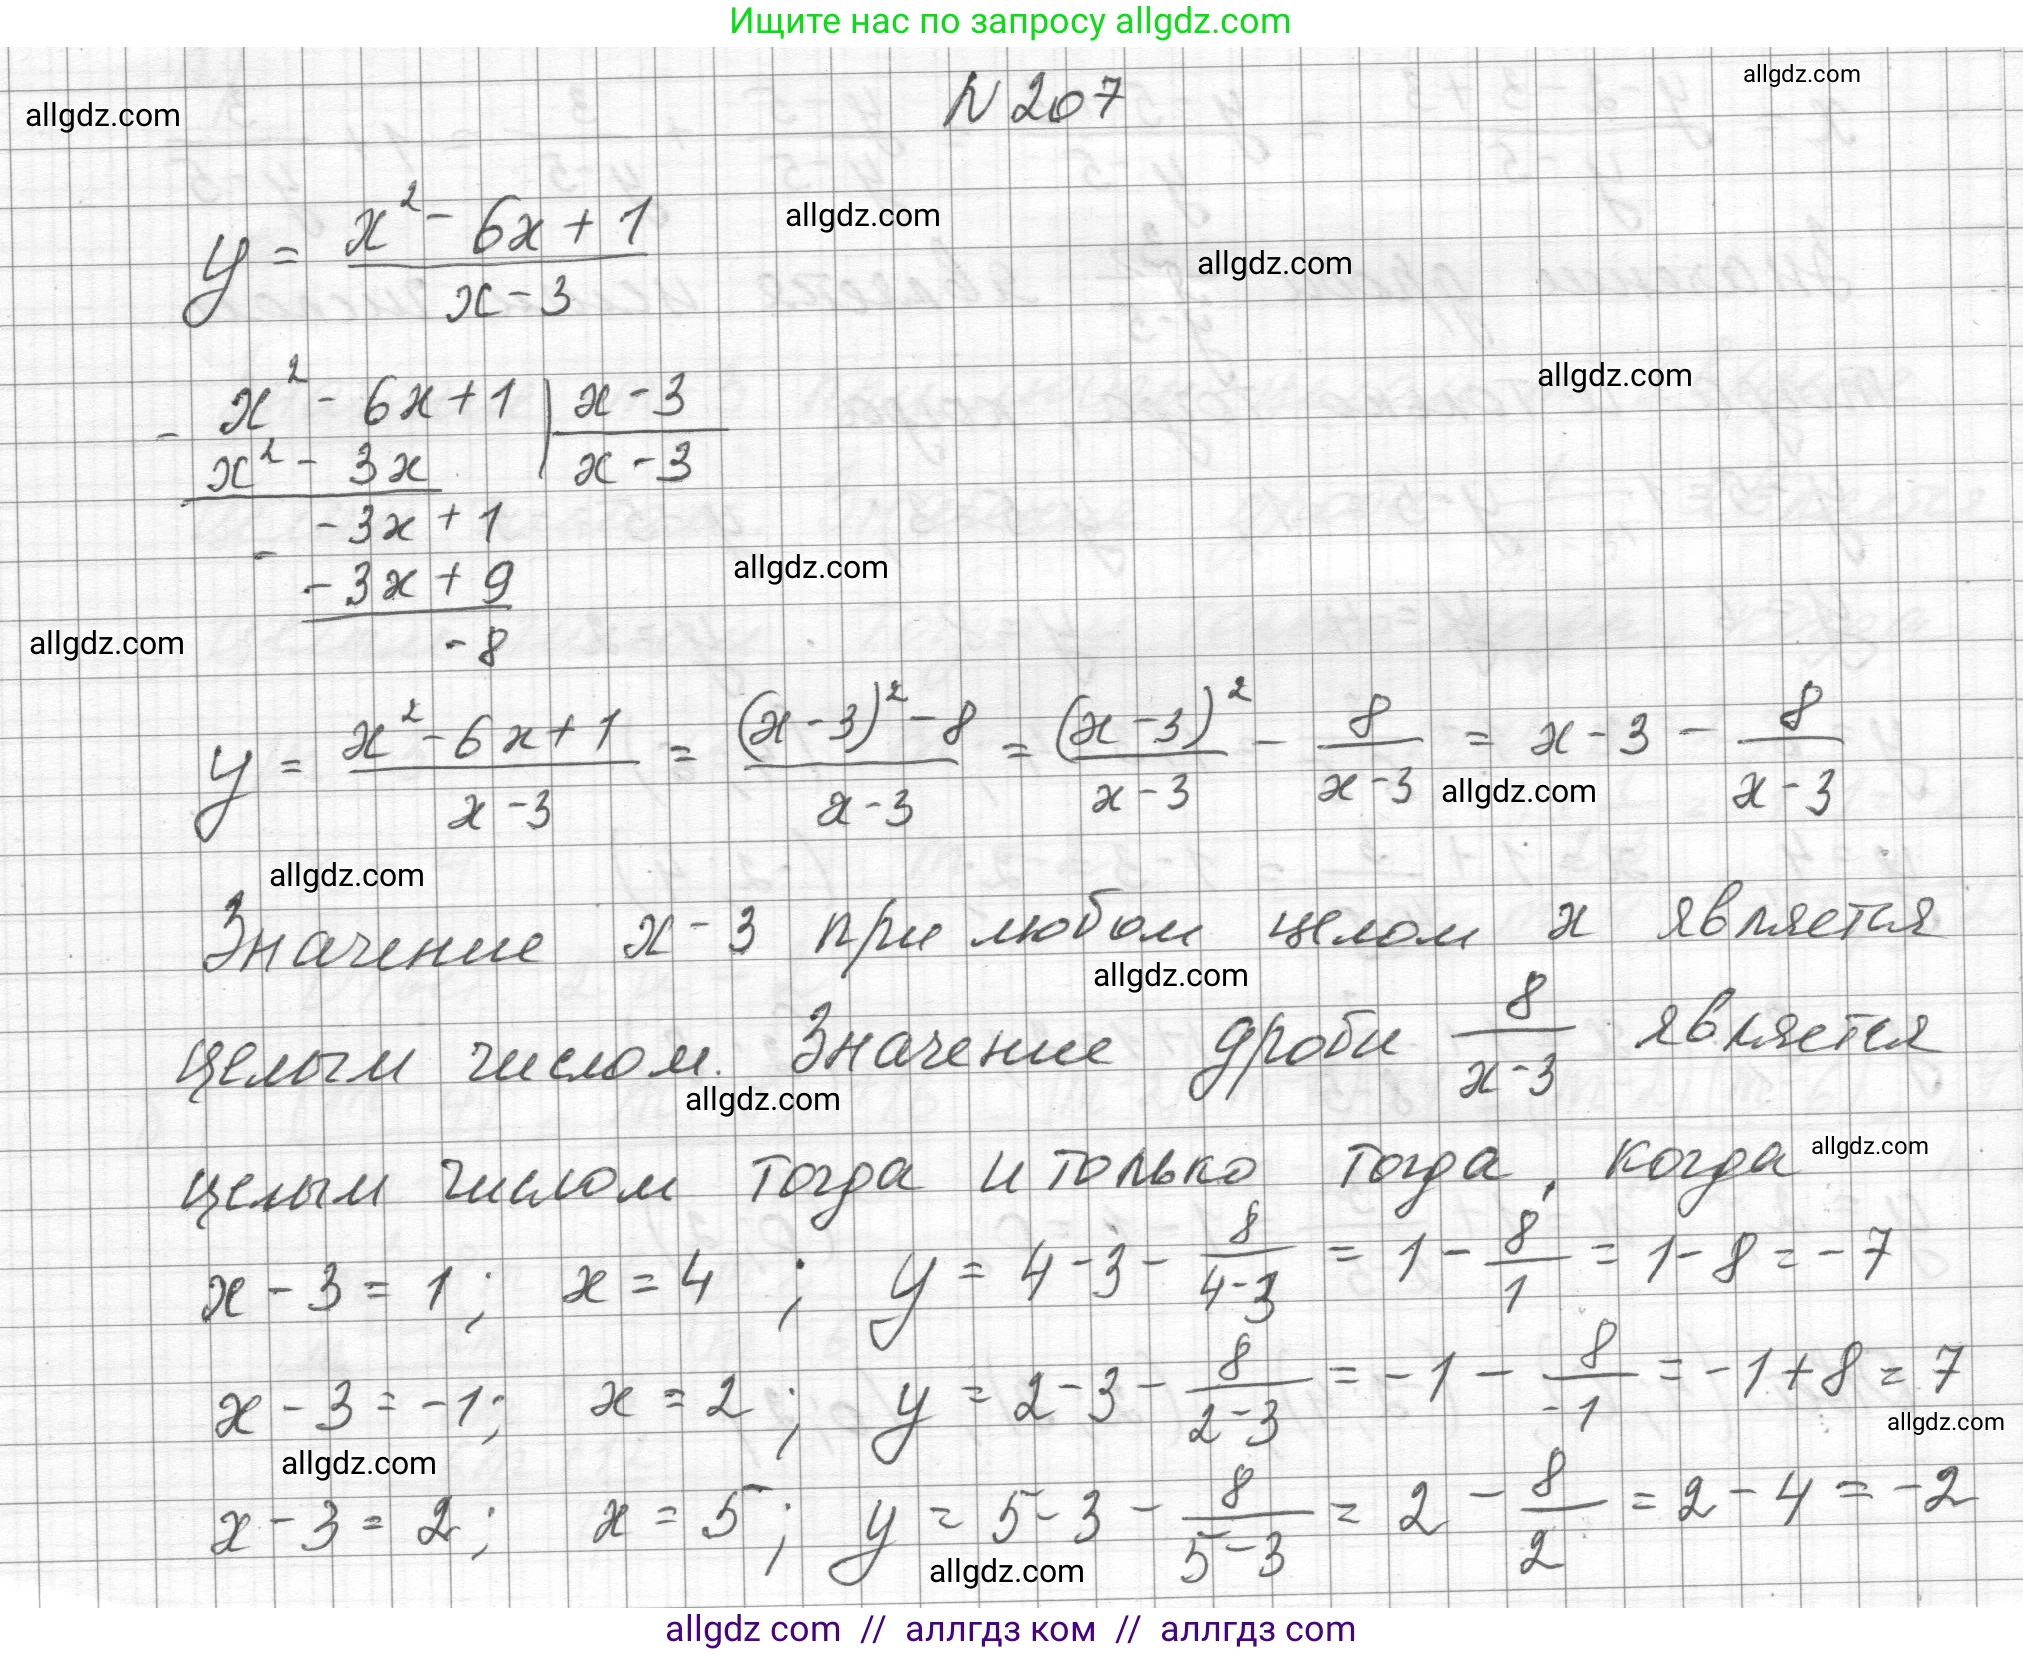 Ищите нас по запросу allgdz.com
allgdz.com
N 207
allgdz.com
y = (x² - 6x + 1)/(x - 3)
allgdz.com
allgdz.com
allgdz.com
- x² - 6x + 1 | x - 3
x² - 3x | x - 3
- 3x + 1
-
- 3x + 9
- 8
allgdz.com
allgdz.com
y = (x² - 6x + 1)/(x - 3) = ((x - 3)² - 8)/(x - 3) = (x - 3)²/(x - 3) - 8/(x - 3) = x - 3 - 8/(x - 3)
allgdz.com
allgdz.com
Значение x - 3 при любом целом x является
allgdz.com
целым числом. Значение дроби 8/(x - 3) является
allgdz.com
целым числом тогда и только тогда, когда
allgdz.com
x - 3 = 1; x = 4; y = 4 - 3 - 8/(4 - 3) = 1 - 8/1 = 1 - 8 = - 7
x - 3 = -1; x = 2; y = 2 - 3 - 8/(2 - 3) = - 1 - 8/-1 = - 1 + 8 = 7
allgdz.com
allgdz.com
x - 3 = 2; x = 5; y = 5 - 3 - 8/(5 - 3) = 2 - 8/2 = 2 - 4 = -2
allgdz.com
allgdz com // аллгдз ком // аллгдз com